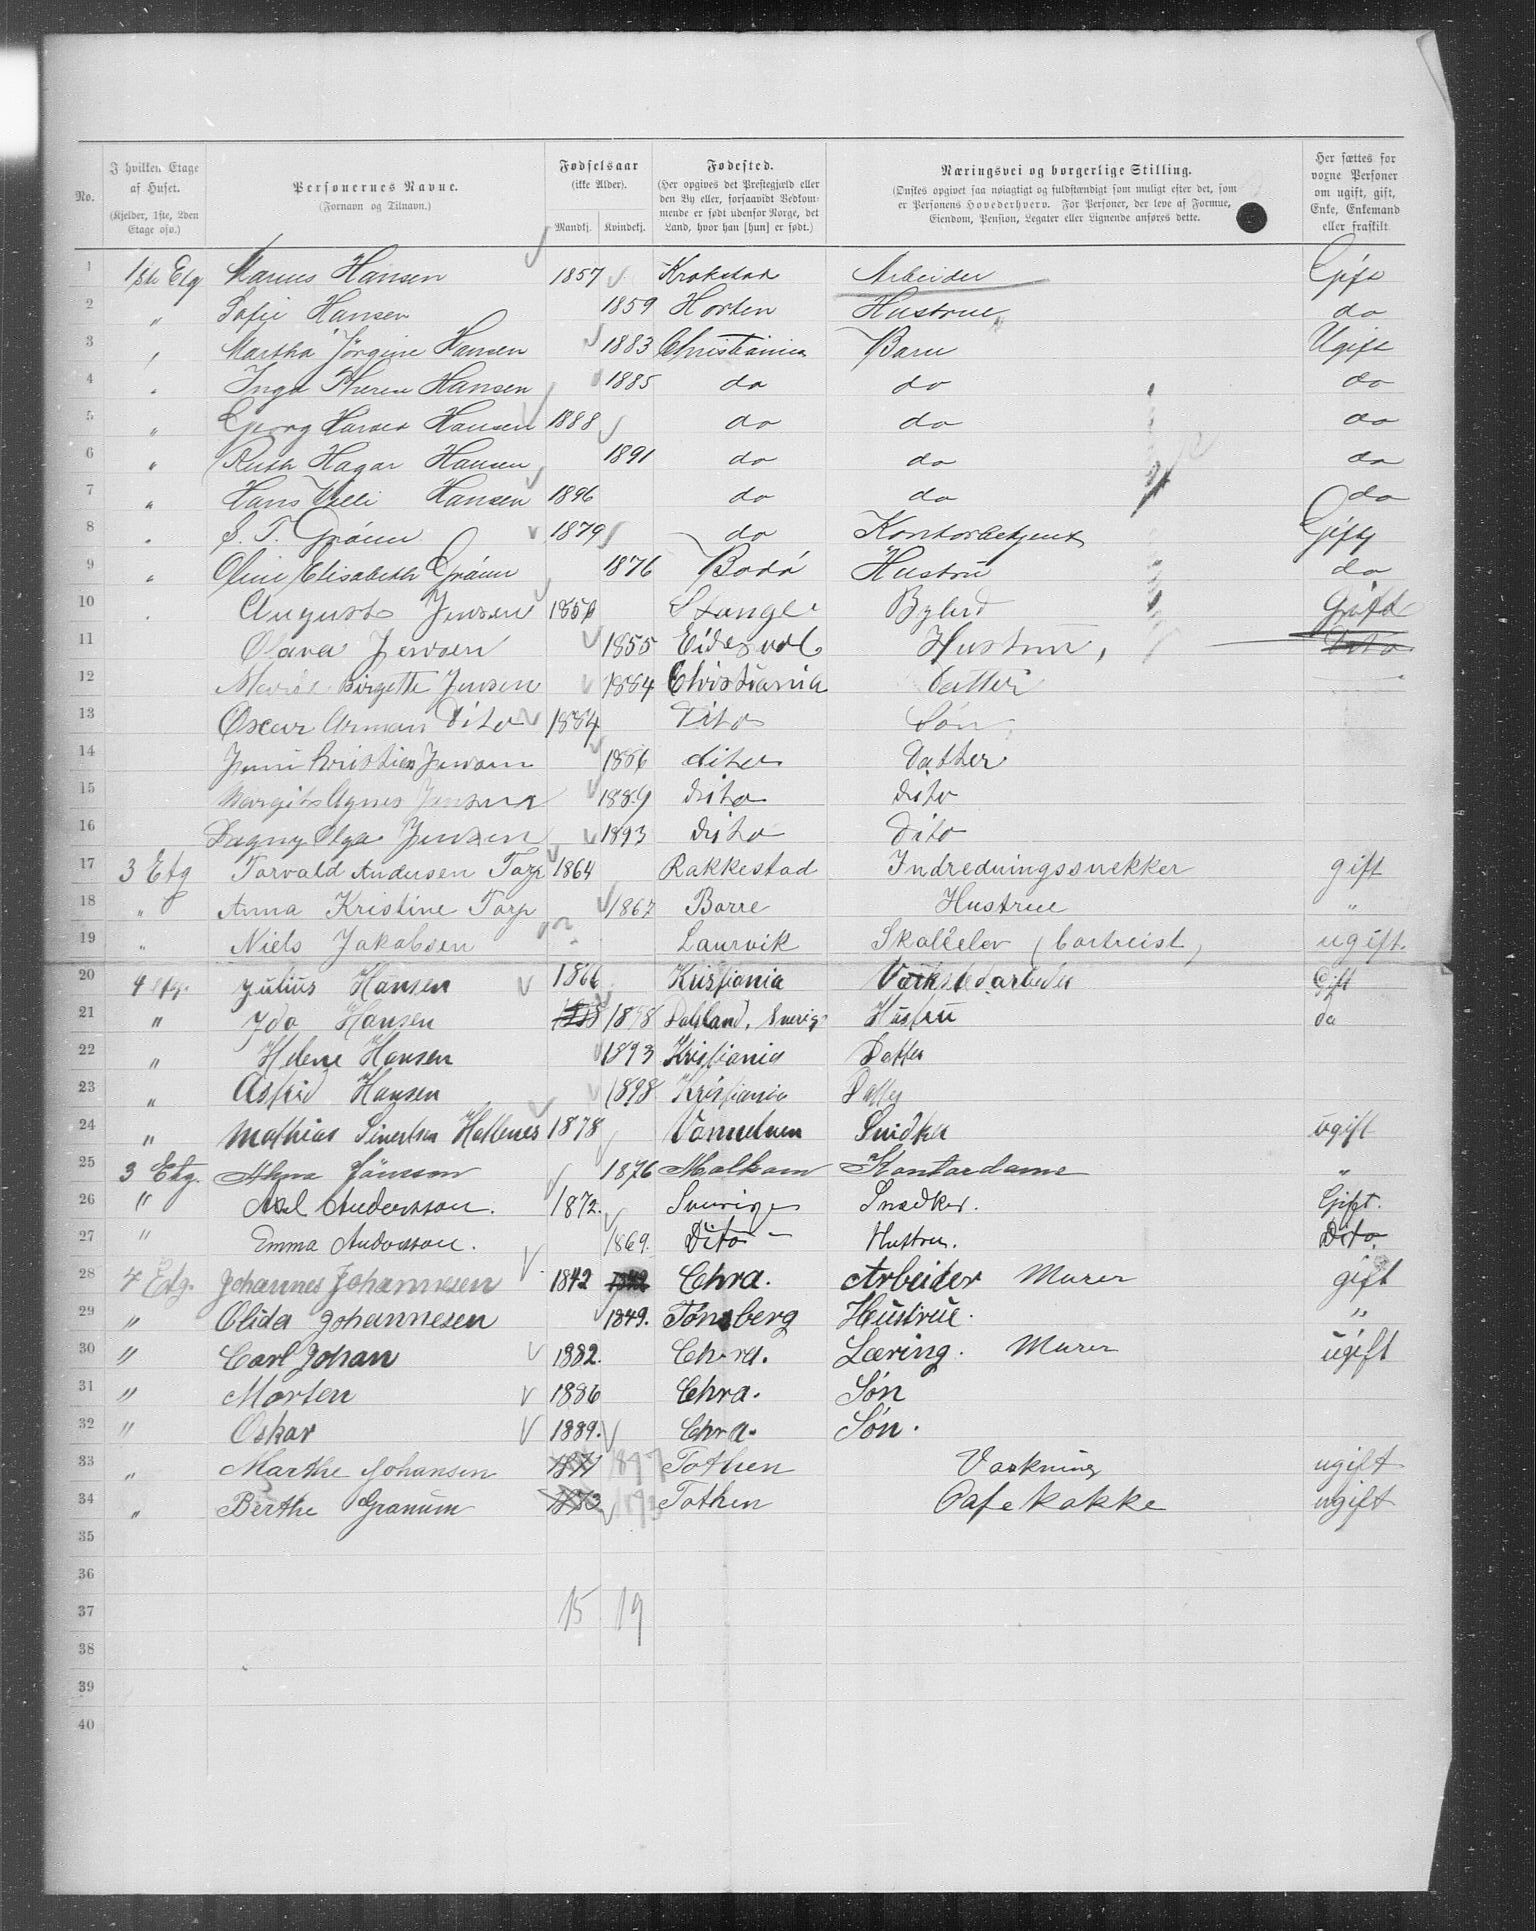 No.
I hvilken Etage af Huset. (Kjelder, 1ste, 2den Etage osv.)
Personernes Navne. (Fornavn og Tilnavn.)
Fødselsaar (ikke Alder). Mandkj. Kvindekj.
Fødested. (Her opgives det Prestegjæld eller den By eller, forsaavidt Vedkommende er født udenfor Norge, det Land, hvor han [hun] er født.)
Næringsvei og borgerlige Stilling. (Ønskes opgivet saa nøiagtigt og fuldstændigt som muligt efter det, som er Personens Hovederhverv. For Personer, der leve af Formue, Eiendom, Pension, Legater eller Lignende anføres dette.
Her sættes for voxne Personer om ugift, gift, Enke, Enkemand eller fraskilt
1 1ste Etg Marius Hansen 1857 Krokstad Arbeider Gift
2 " Sofie Hansen 1859 Horten Hustrue do
3 " Martha Jørgine Hansen 1883 Christiania Barn Ugift
4 " Inga Therese Hansen 1885 do do do
5 " Georg Hansen 1888 do do do
6 " Ruth Hagar Hansen 1891 do do do
7 " Hans Villi Hansen 1896 do do do
8 " S. T. Grönn 1879 do Kontorbetjent Gift
9 " Oline Elisabeth Grönn 1876 Bodö Hustru do
10 " August Jensen Stange Bybud Gift
11 Olava Jensen 1855 Eidsvol Hustru, Dito
12 Birgette Jensen 1884 Christiania Datter "
13 Oscar Arman Dito 1884 Dito Søn
14 Jenni Kristien Jensen 1886 dito Datter
15 Margit Agnes Jensen 1889 dito dito
16 Dagny Olga Jensen 1893 dito Dito
17 3 Etg Torvald Andersen Torp 1864 Rakkestad Indredningssnekker gift
18 " Anna Kristine Torp 1867 Borre Hustrue "
19 " Niels Jakobsen ? Laurvik Skolelev (bortreist) ugift.
20 4 Etg. Julius Hansen 1866 Kristiania Værkstedarbeider Gift
21 " Ida Hansen Dalsland, Sverige Hustru do
22 " Helene Hansen 1893 Kristiania Datter
23 " Astrid Hansen 1898 Kristiania Datter
24 " Mathias Sivertsen 1878 Snidker ugift
25 3 Etg. Alma Jönsson 1876 Kontordame "
26 " Axel Andersson. 1872. Sverige Snedker. Gift.
27 " Emma Andersson. 1869. Dito – Hustru. Dito.
28 4 Etg. Johannes Johannesen 1842 Chra. Arbeider Murer gift
29 " Olida Johannesen 1849. Tønsberg Hustrue. "
30 " Carl Johan 1882. Chra. Læring. Murer ugift
31 " Morten 1886 Chra. Søn
32 " Oskar 1889. Chra. Søn.
33 " Marthe Johansen 1877 Tothen Vaskning ugift
34 " Berthe Granum 1873 Tothen Cafe kokke ugift
35
36
37 15 19
38
39
40